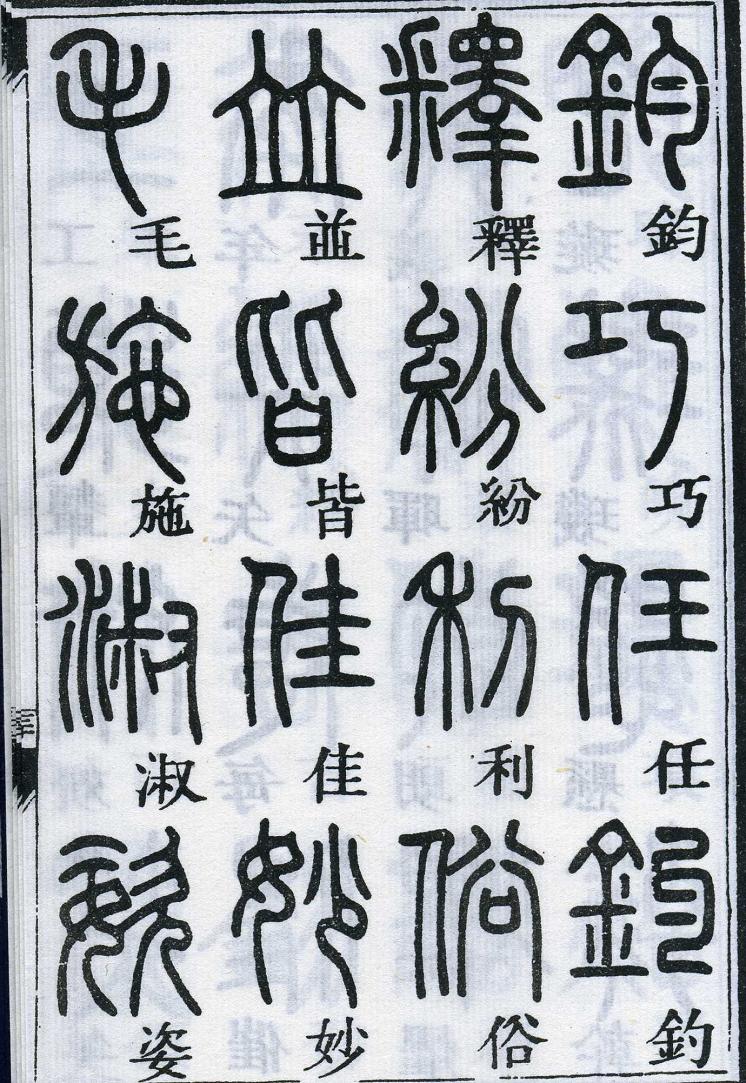 鈞巧任釣
釋紛利俗
並皆佳妙
毛施淑姿